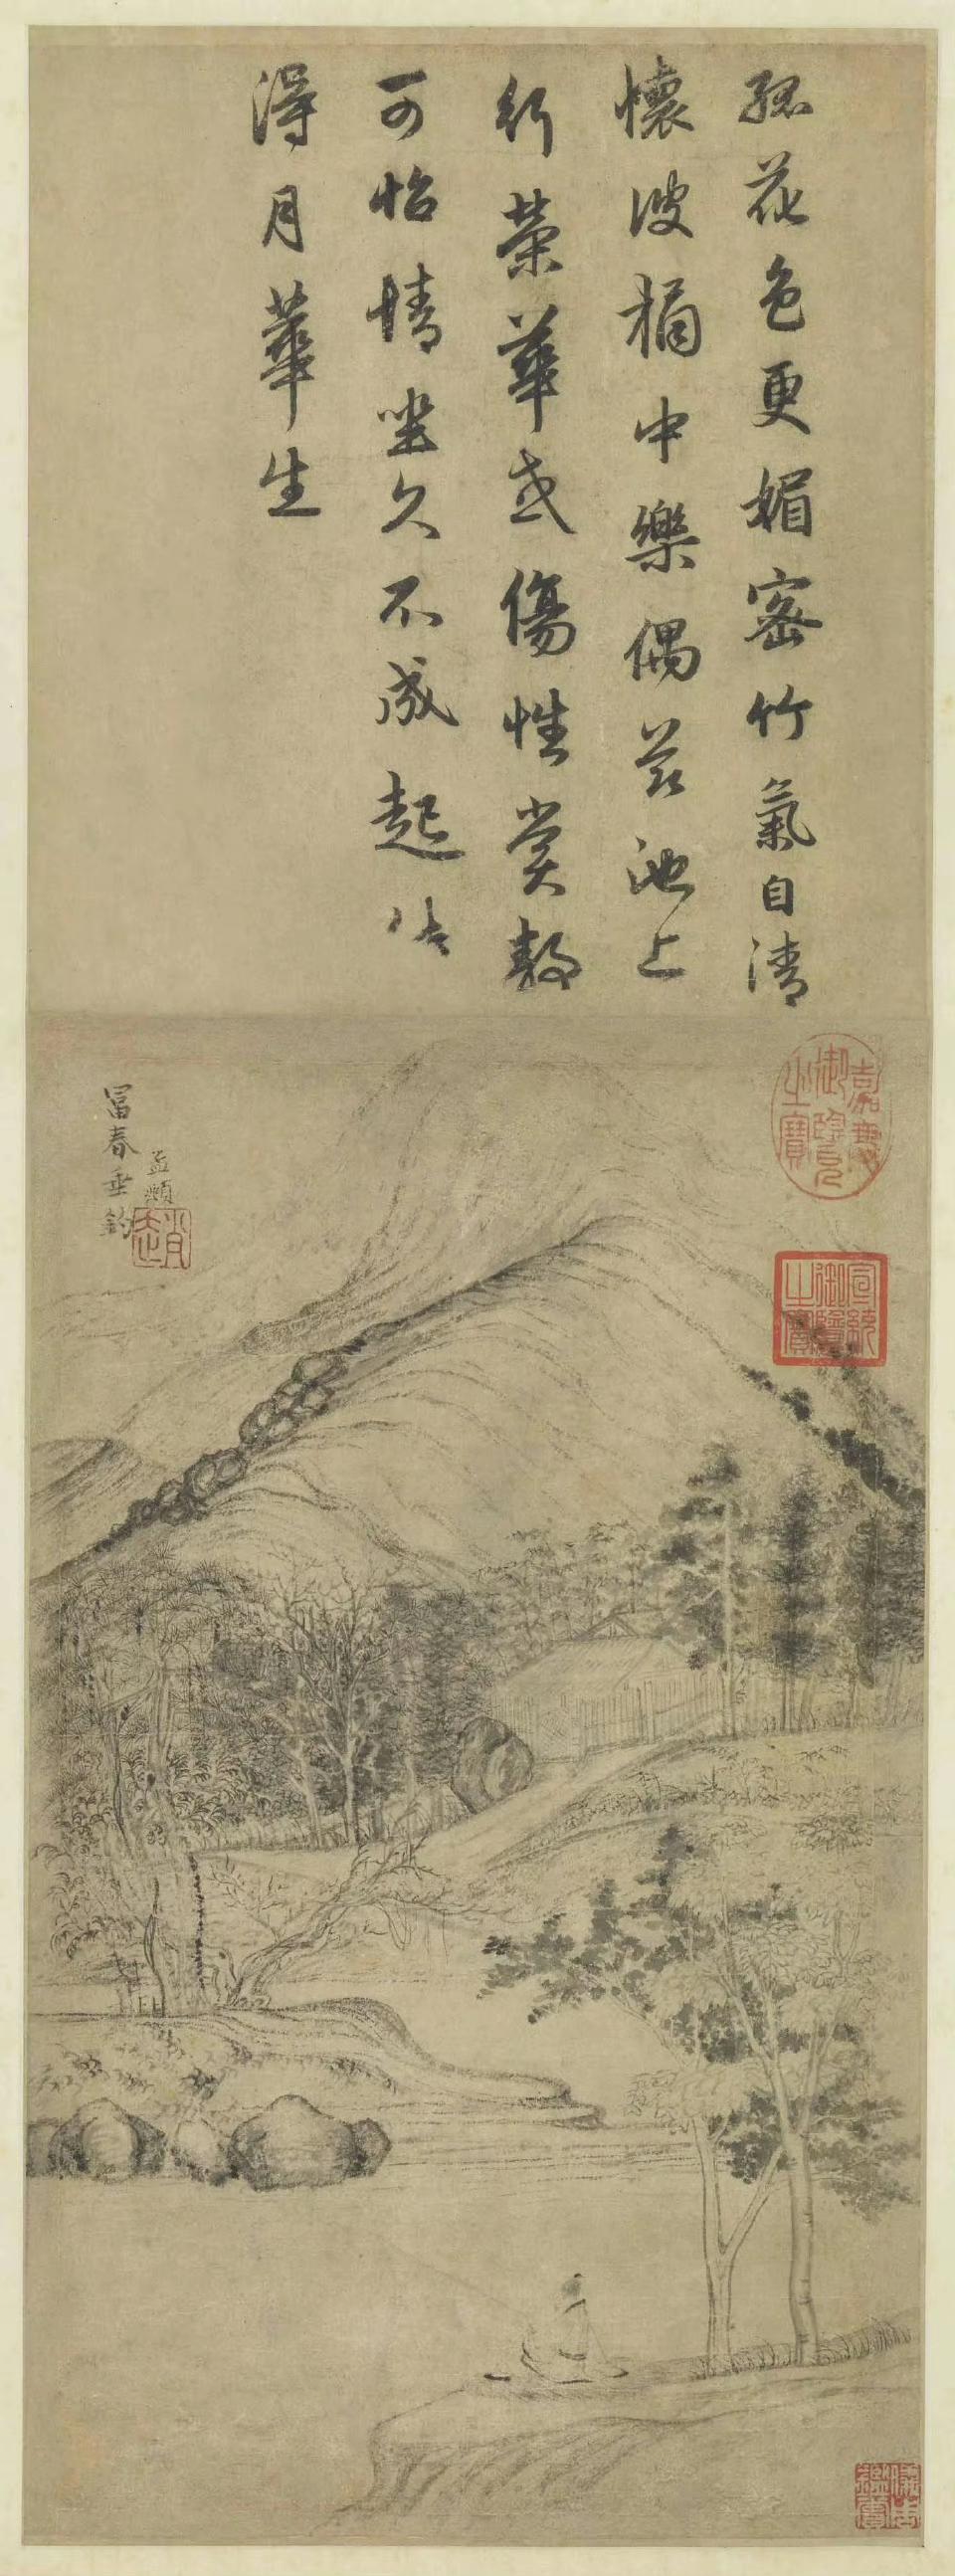 孤花色更媚密竹氣自清
懷彼橘中樂偶茲池上
行榮華或傷性
可怡情坐久不成起待
得月華生
嘉慶御覽之寶
宣統御覽之寶
孟頫
富春垂釣